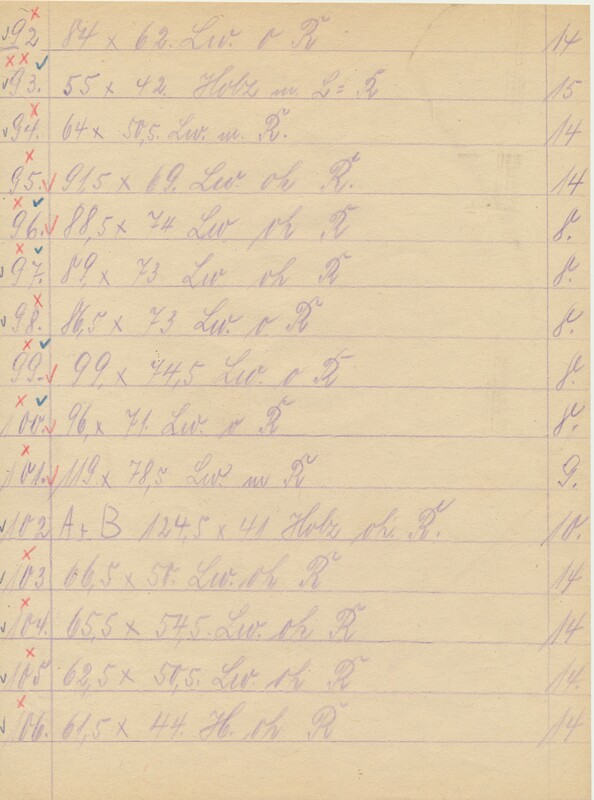 92 84 x 62. Lw. o R 14
93. 55 x 42. Holz m. L= R 15
94. 64 x 50,5. Lw. m. R. 14
95. 91,5 x 69. Lw. oh R. 14
96. 88,5 x 74 Lw oh R 8.
97. 89, x 73 Lw. oh R 8.
98. 86,5 x 73 Lw. o R 8.
99. 99, x 74,5 Lw. o R 8.
100. 96, x 71. Lw. o R 8.
101. 119 x 78,5 Lw m R 9.
102 A + B 124,5 x 41 Holz oh. R. 10.
103 66,5 x 50. Lw. oh R 14
104. 65,5 x 54,5. Lw. oh R 14
105 62,5 x 50,5. Lw. oh R 14.
106. 61,5 x 44. H. oh R 14